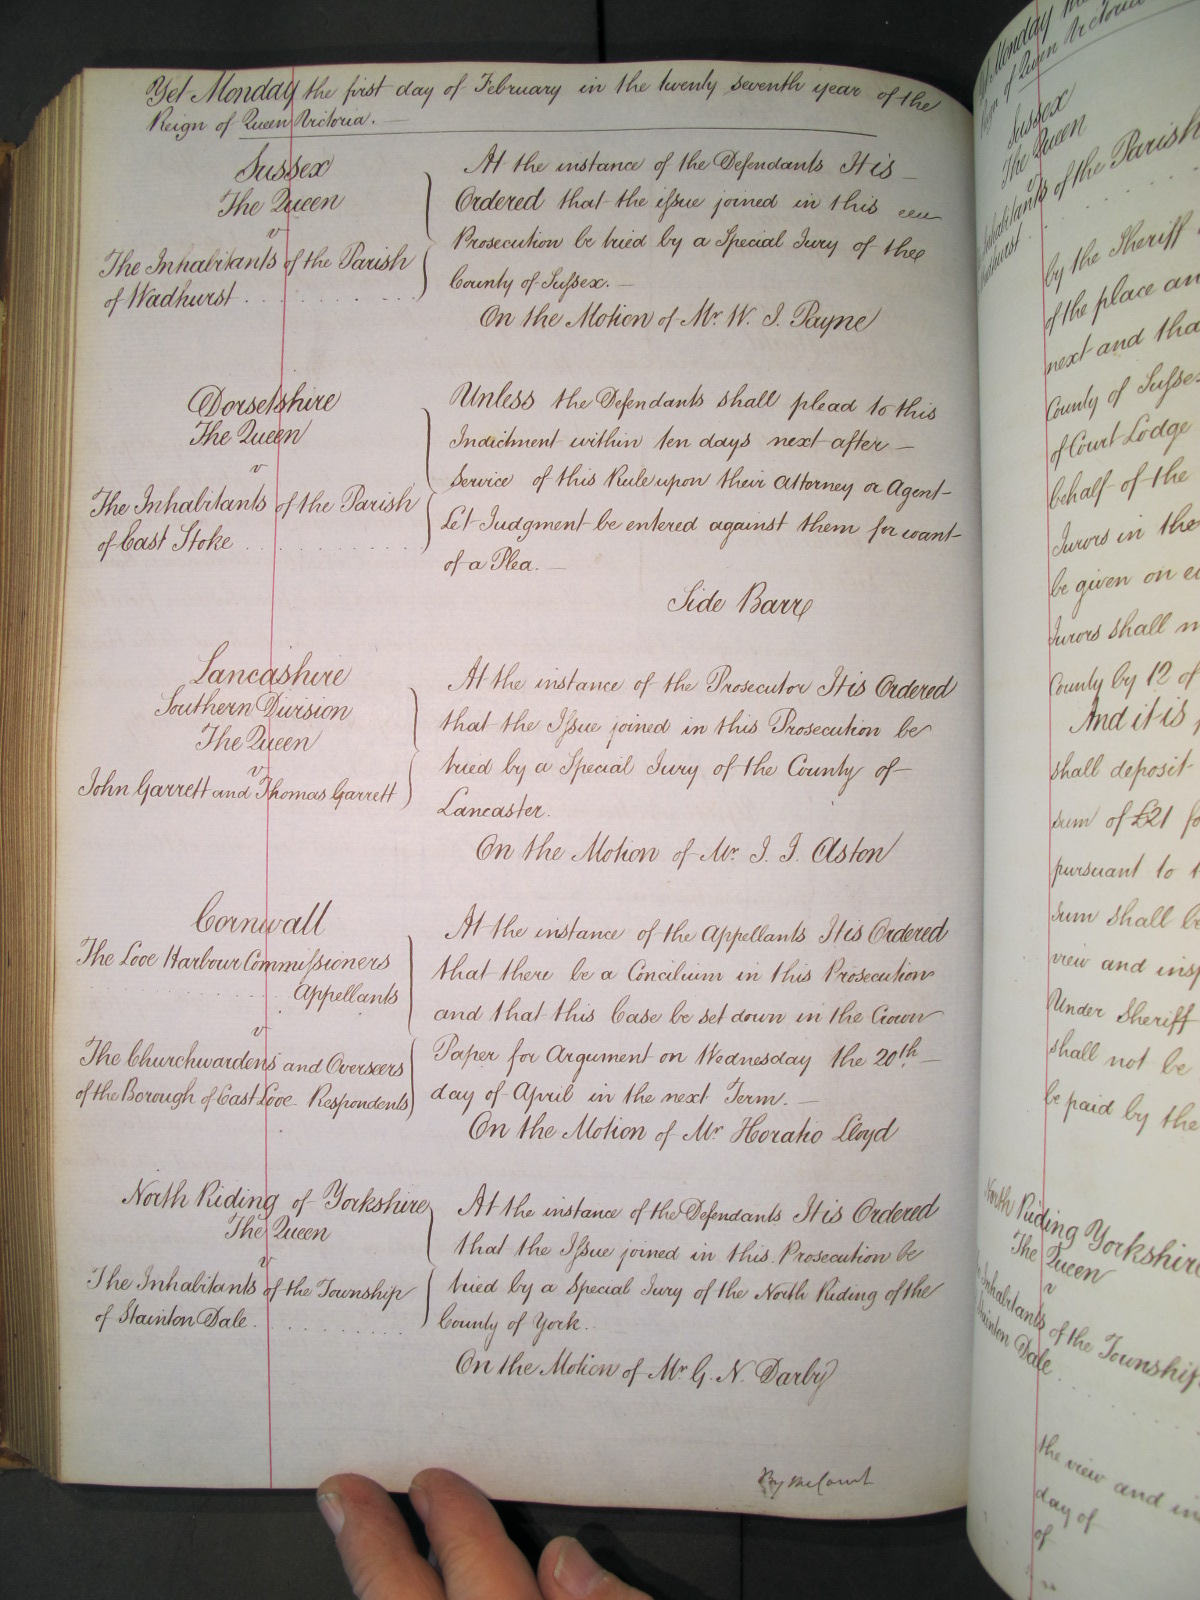 Yet Monday the first day of February in the twenty seventh year of the
Reign of Queen Victoria. —
Sussex
The Queen
v
The Inhabitants of the Parish
of Wadhurst . . . . . . . . .
At the instance of the Defendants It is —
Ordered that the issue joined in this
Prosecution be tried by a Special Jury of the
County of Sussex. —
On the Motion of Mr. W. J. Payne
Dorsetshire
The Queen
v
The Inhabitants of the Parish
of East Stoke . . . . . . . . .
Unless the Defendants shall plead to this
Indictment within ten days next after —
Service of this Rule upon their Attorney or Agent
Let Judgment be entered against them for want
of a Plea. —
Side Barr
Lancashire
Southern Division
The Queen
v
John Garrett and Thomas Garrett
At the instance of the Prosecutor It is Ordered
that the Issue joined in this Prosecution be
tried by a Special Jury of the County of —
Lancaster.
On the Motion of Mr. J. J. Aston
Cornwall
The Looe Harbour Commissioners
. . . . . . . Appellants
v
The Churchwardens and Overseers
of the Borough of East Looe Respondents
At the instance of the Appellants It is Ordered
that there be a Concilium in this Prosecution
and that this Case be set down in the Crown
Paper for Argument on Wednesday the 20th. —
day of April in the next Term. —
On the Motion of Mr Horatio Lloyd
North Riding of Yorkshire
The Queen
v
The Inhabitants of the Township
of Stainton Dale . . . . . . . . .
At the instance of the Defendants It is Ordered
that the Issue joined in this Prosecution be
tried by a Special Jury of the North Riding of the
County of York.
On the Motion of Mr G. N. Darby
By the Court
Yet Monday the
Reign of Queen Victoria
Sussex
The Queen
v
Inhabitants of the Parish
by the Sheriff
of the place an
next and tha
County of Susse
of Court Lodge
behalf of the
Jurors in the
be given on e
Jurors shall n
County by 12 of
And it is
shall deposit
sum of £21 fo
pursuant to t
sum shall be
view and insp
Under Sheriff
shall not be
be paid by the
North Riding Yorkshire
The Queen
v
Inhabitants of the Township
Stainton Dale
the view and in
day of
of